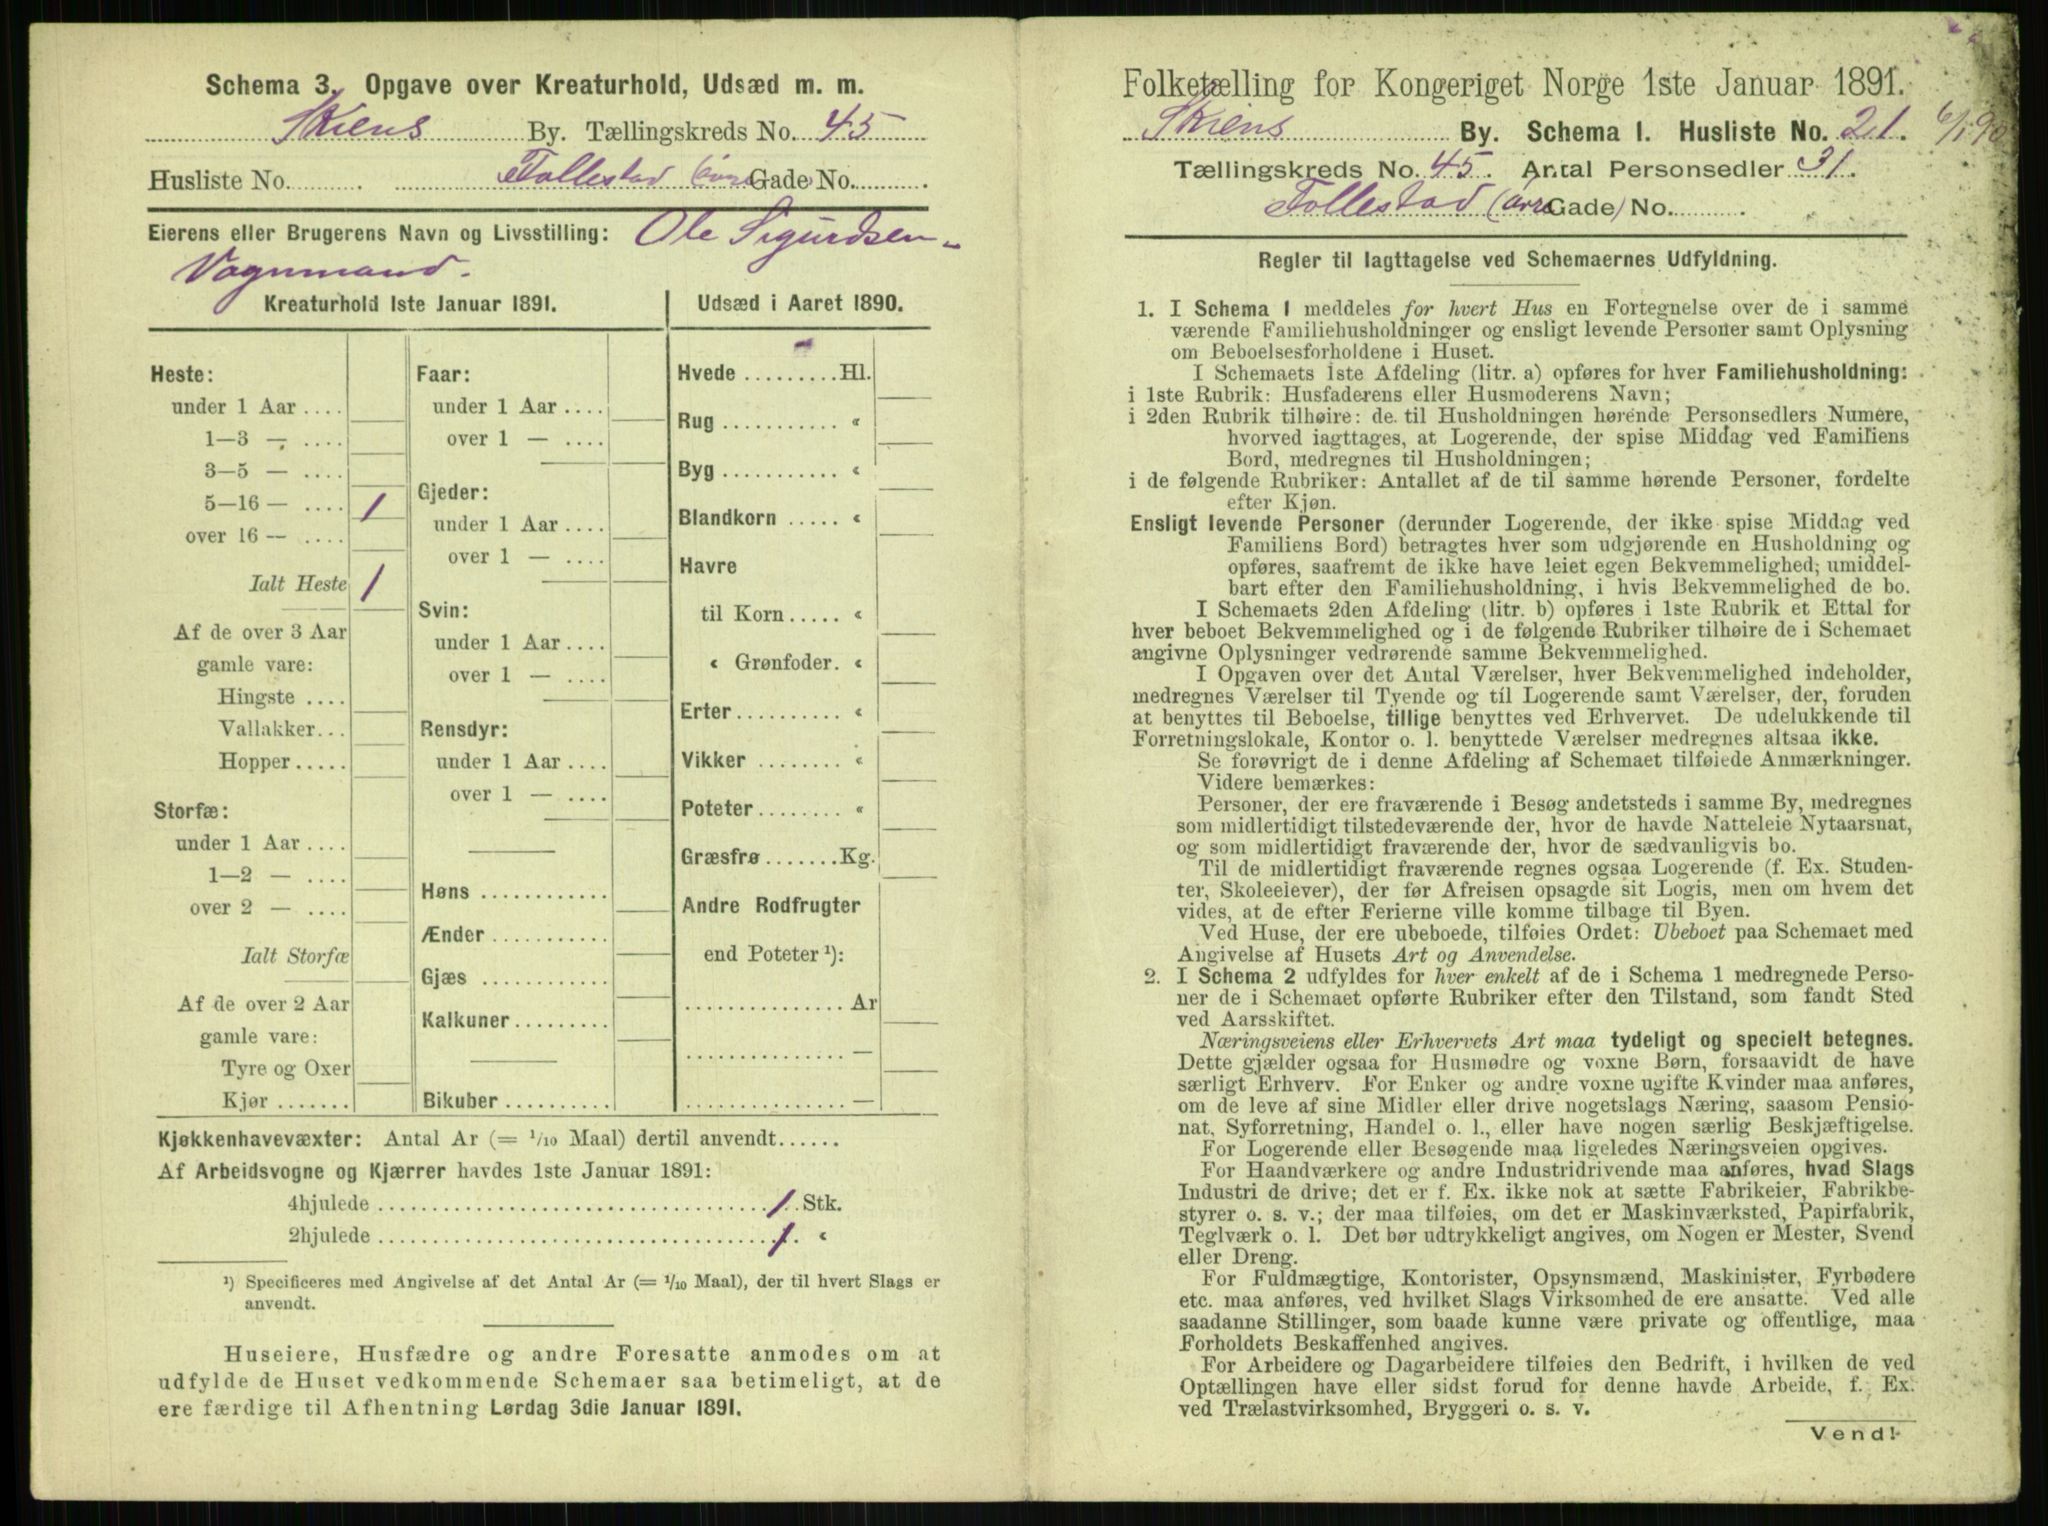 Schema 3. Opgave over Kreaturhold, Udsæd m. m.
Skiens By. Tællingskreds No. 45
Husliste No. Follestad (øvre Gade) No.
Eierens eller Brugerens Navn og Livsstilling: Ole Sigurdsen
Vognmand.
Kreaturhold 1ste Januar 1891.
Heste:
under 1 Aar ....
1—3 — ....
3—5 — ....
5—16 — .... 1
over 16 — ....
Ialt Heste 1
Af de over 3 Aar
gamle vare:
Hingste ....
Vallakker...
Hopper.....
Storfæ:
under 1 Aar ....
1—2 — ....
over 2 — ....
Ialt Storfæ
Af de over 2 Aar
gamle vare:
Tyre og Oxer
Kjør .......
Faar:
under 1 Aar ....
over 1 — ....
Gjeder:
under 1 Aar ....
over 1 — ....
Svin:
under 1 Aar ....
over 1 — ....
Rensdyr:
under 1 Aar ....
over 1 — ....
Høns ............
Ænder ...........
Gjæs ............
Kalkuner.........
Bikuber ..........
Udsæd i Aaret 1890.
Hvede .........Hl.
Rug ........... «
Byg ........... «
Blandkorn ..... «
Havre
til Korn..... «
« Grønfoder. «
Erter.......... «
Vikker ........ «
Poteter........ «
Græsfrø .......Kg.
Andre Rodfrugter
end Poteter ¹):
............... Ar
............... —
............... —
Kjøkkenhavevæxter: Antal Ar (= 1/10 Maal) dertil anvendt......
Af Arbeidsvogne og Kjærrer havdes 1ste Januar 1891:
4hjulede .................................... 1 Stk.
2hjulede .................................... 1. «
¹) Specificeres med Angivelse af det Antal Ar (= 1/10 Maal), der til hvert Slags er
anvendt.
Huseiere, Husfædre og andre Foresatte anmodes om at
udfylde de Huset vedkommende Schemaer saa betimeligt, at de
ere færdige til Afhentning Lørdag 3die Januar 1891.
Folketælling for Kongeriget Norge 1ste Januar 1891.
Skiens By. Schema 1. Husliste No. 21.
Tællingskreds No. 45. Antal Personsedler 31.
Follestad (øvre Gade) No.
Regler til Iagttagelse ved Schemaernes Udfyldning.
1. I Schema 1 meddeles for hvert Hus en Fortegnelse over de i samme
værende Familiehusholdninger og ensligt levende Personer samt Oplysning
om Beboelsesforholdene i Huset.
I Schemaets 1ste Afdeling (litr. a) opføres for hver Familiehusholdning:
i 1ste Rubrik: Husfaderens eller Husmoderens Navn;
i 2den Rubrik tilhøire: de til Husholdningen hørende Personsedlers Numere,
hvorved iagttages, at Logerende, der spise Middag ved Familiens
Bord, medregnes til Husholdningen;
i de følgende Rubriker: Antallet af de til samme hørende Personer, fordelte
efter Kjøn.
Ensligt levende Personer (derunder Logerende, der ikke spise Middag ved
Familiens Bord) betragtes hver som udgjørende en Husholdning og
opføres, saafremt de ikke have leiet egen Bekvemmelighed; umiddel-
bart efter den Familiehusholdning, i hvis Bekvemmelighed de bo.
I Schemaets 2den Afdeling (litr. b) opføres i 1ste Rubrik et Ettal for
hver beboet Bekvemmelighed og i de følgende Rubriker tilhøire de i Schemaet
angivne Oplysninger vedrørende samme Bekvemmelighed.
I Opgaven over det Antal Værelser, hver Bekvemmelighed indeholder,
medregnes Værelser til Tyende og til Logerende samt Værelser, der, foruden
at benyttes til Beboelse, tillige benyttes ved Erhvervet. De udelukkende til
Forretningslokale, Kontor o. l. benyttede Værelser medregnes altsaa ikke.
Se forøvrigt de i denne Afdeling af Schemaet tilføiede Anmærkninger.
Videre bemærkes:
Personer, der ere fraværende i Besøg andetsteds i samme By, medregnes
som midlertidigt tilstedeværende der, hvor de havde Natteleie Nytaarsnat,
og som midlertidigt fraværende der, hvor de sædvanligvis bo.
Til de midlertidigt fraværende regnes ogsaa Logerende (f. Ex. Studen-
ter, Skoleelever), der før Afreisen opsagde sit Logis, men om hvem det
vides, at de efter Ferierne ville komme tilbage til Byen.
Ved Huse, der ere ubeboede, tilføies Ordet: Ubeboet paa Schemaet med
Angivelse af Husets Art og Anvendelse.
2. I Schema 2 udfyldes for hver enkelt af de i Schema 1 medregnede Perso-
ner de i Schemaet opførte Rubriker efter den Tilstand, som fandt Sted
ved Aarsskiftet.
Næringsveiens eller Erhvervets Art maa tydeligt og specielt betegnes.
Dette gjælder ogsaa for Husmødre og voxne Børn, forsaavidt de have
særligt Erhverv. For Enker og andre voxne ugifte Kvinder maa anføres,
om de leve af sine Midler eller drive nogetslags Næring, saasom Pensio-
nat, Syforretning, Handel o. l., eller have nogen særlig Beskjæftigelse.
For Logerende eller Besøgende maa ligeledes Næringsveien opgives.
For Haandværkere og andre Industridrivende maa anføres, hvad Slags
Industri de drive; det er f. Ex. ikke nok at sætte Fabrikeier, Fabrikbe-
styrer o. s. v.; der maa tilføies, om det er Maskinværksted, Papirfabrik,
Teglværk o. l. Det bør udtrykkeligt angives, om Nogen er Mester, Svend
eller Dreng.
For Fuldmægtige, Kontorister, Opsynsmænd, Maskinister, Fyrbødere
etc. maa anføres, ved hvilket Slags Virksomhed de ere ansatte. Ved alle
saadanne Stillinger, som baade kunne være private og offentlige, maa
Forholdets Beskaffenhed angives.
For Arbeidere og Dagarbeidere tilføies den Bedrift, i hvilken de ved
Optællingen have eller sidst forud for denne havde Arbeide, f. Ex.
ved Trælastvirksomhed, Bryggeri o. s. v.
Vend!